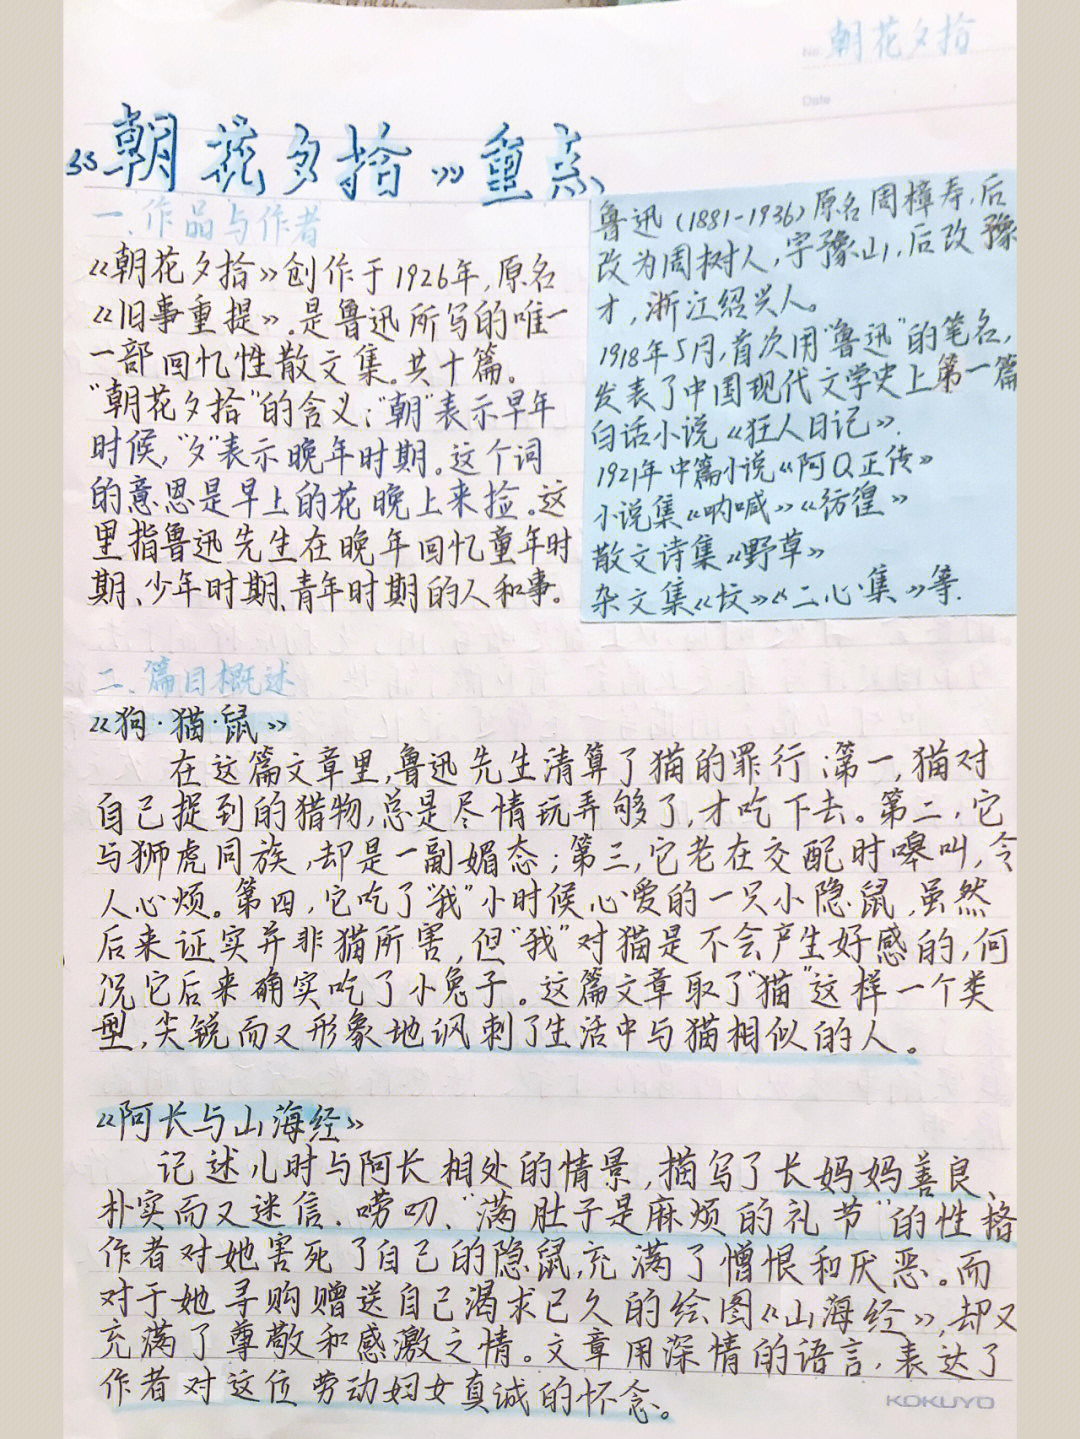 朝花夕拾
No.
Date
《朝花夕拾》重点
一.作品与作者
《朝花夕拾》创作于1926年,原名
《旧事重提》.是鲁迅所写的唯一
一部回忆性散文集。共十篇。
"朝花夕拾"的含义:"朝"表示早年
时候,"夕"表示晚年时期。这个词
的意思是早上的花晚上来捡。这
里指鲁迅先生在晚年回忆童年时
期、少年时期、青年时期的人和事。
鲁迅(1881-1936)原名周樟寿,后
改为周树人,字豫山,后改豫
才,浙江绍兴人。
1918年5月,首次用"鲁迅"的笔名,
发表了中国现代文学史上第一篇
白话小说《狂人日记》.
1921年中篇小说《阿Q正传》
小说集《呐喊》《彷徨》
散文诗集《野草》
杂文集《坟》《二心集》等.
二.篇目概述
《狗·猫·鼠》
在这篇文章里,鲁迅先生清算了猫的罪行:第一,猫对
自己捉到的猎物,总是尽情玩弄够了,才吃下去。第二,它
与狮虎同族,却是一副媚态;第三,它老在交配时嗥叫,令
人心烦。第四,它吃了"我"小时候心爱的一只小隐鼠,虽然
后来证实并非猫所害,但"我"对猫是不会产生好感的,何
况它后来确实吃了小兔子。这篇文章取了"猫"这样一个类
型,尖锐而又形象地讽刺了生活中与猫相似的人。
《阿长与山海经》
记述儿时与阿长相处的情景,描写了长妈妈善良、
朴实而又迷信、唠叨、"满肚子是麻烦的礼节"的性格
作者对她害死了自己的隐鼠,充满了憎恨和厌恶。而
对于她寻购赠送自己渴求已久的绘图《山海经》,却又
充满了尊敬和感激之情。文章用深情的语言,表达了
作者对这位劳动妇女真诚的怀念。
KOKUYO